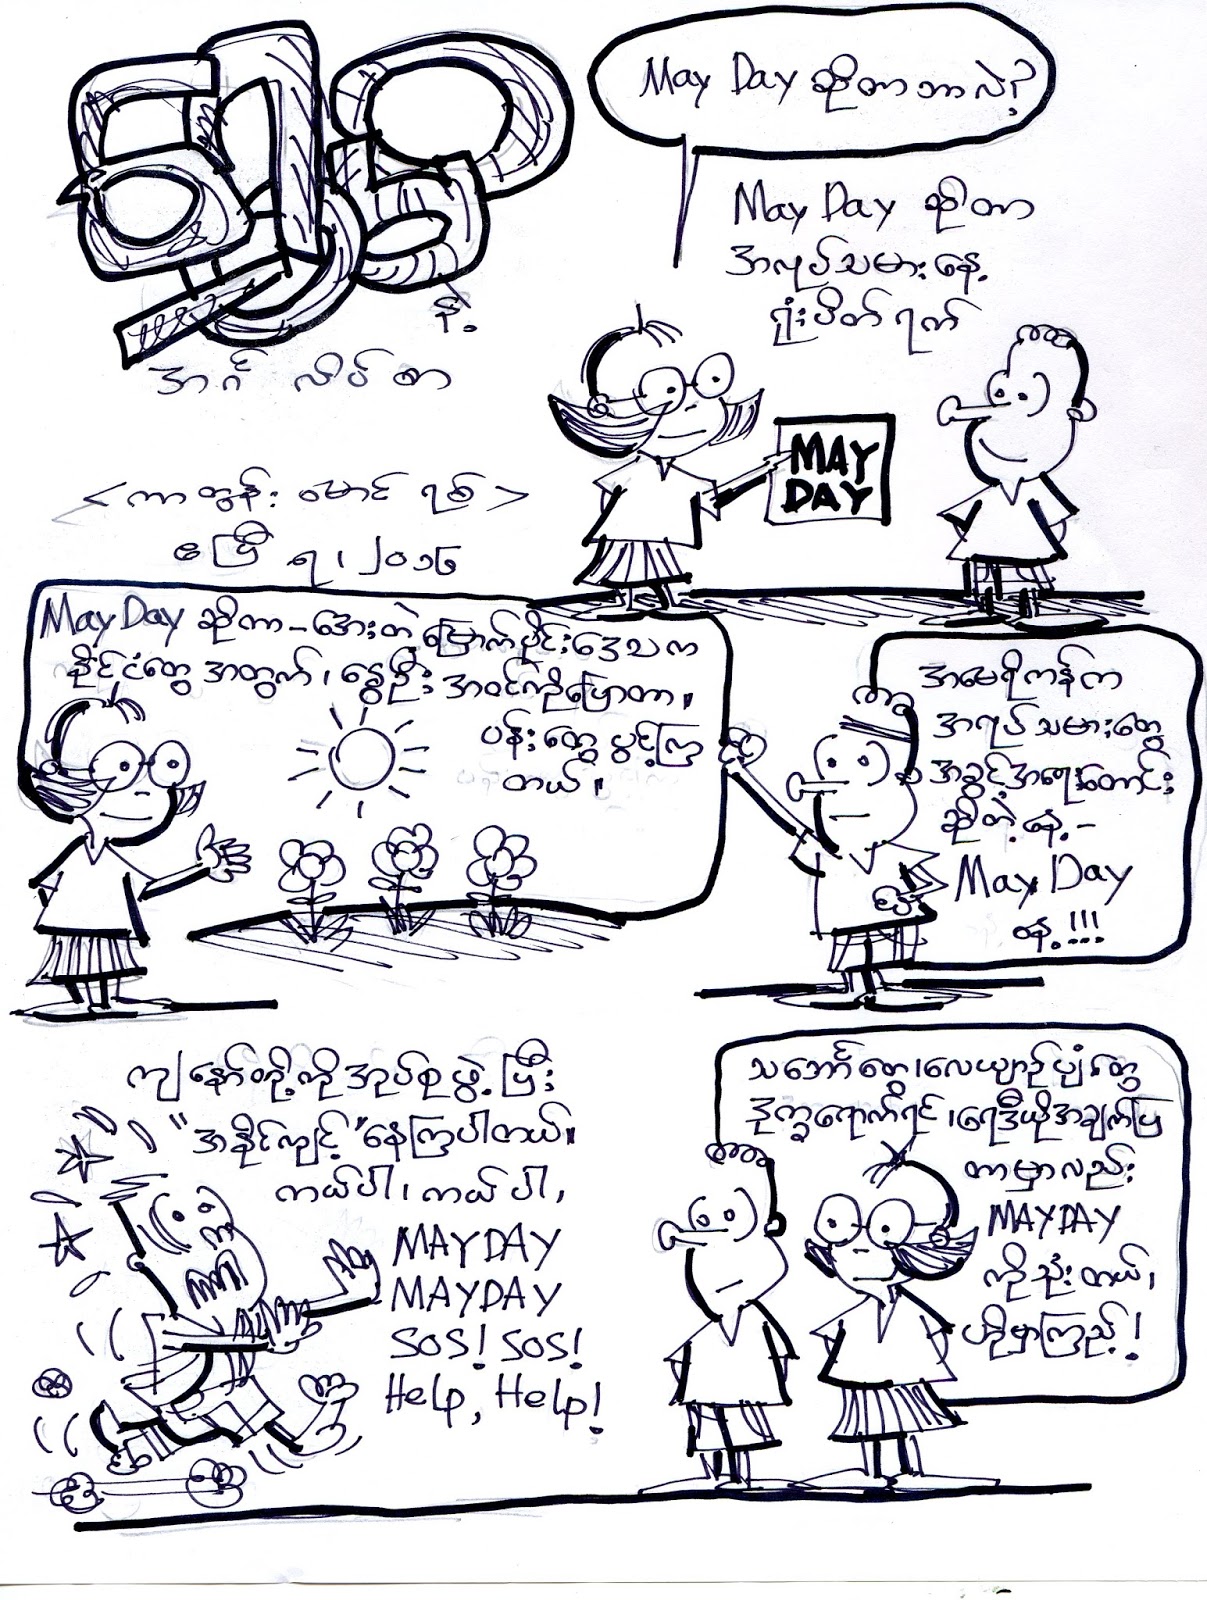 နဲ့
အင်္ဂလိပ်စာ
<ကာတွန်း မောင်ရစ်>
ဧပြီ ၅၊ ၂၀၁၆
May Day ဆိုတာဘာလဲ?
May Day ဆိုတာ
အလုပ်သမားနေ့
ရုံးပိတ်ရက်
MAY
DAY
May Day ဆိုတာ - အေးတဲ့မြောက်ပိုင်းဒေသက
နိုင်ငံတွေအတွက်၊ နွေဦးအဝင်ကိုပြောတာ၊
ပန်းတွေပွင့်ကြ
တယ်၊
အမေရိကန်က
အလုပ်သမားတွေ
အခွင့်အရေးတောင်း
ဆိုတဲ့နေ့ -
May Day
!!!
ကျနော်တို့ကိုအုပ်စုဖွဲ့ပြီး
"အနိုင်ကျင့်"နေကြပါတယ်၊
ကယ်ပါ၊ ကယ်ပါ၊
MAYDAY
MAYDAY
SOS! SOS!
Help, Help!
သင်္ဘောတွေ၊လေယာဉ်ပျံတွေ
ဒုက္ခရောက်ရင်၊ရေဒီယိုအချက်ပြ
တာမှာလည်း
MAYDAY
ကိုသုံးတယ်၊
ဟိုမှာကြည့်!